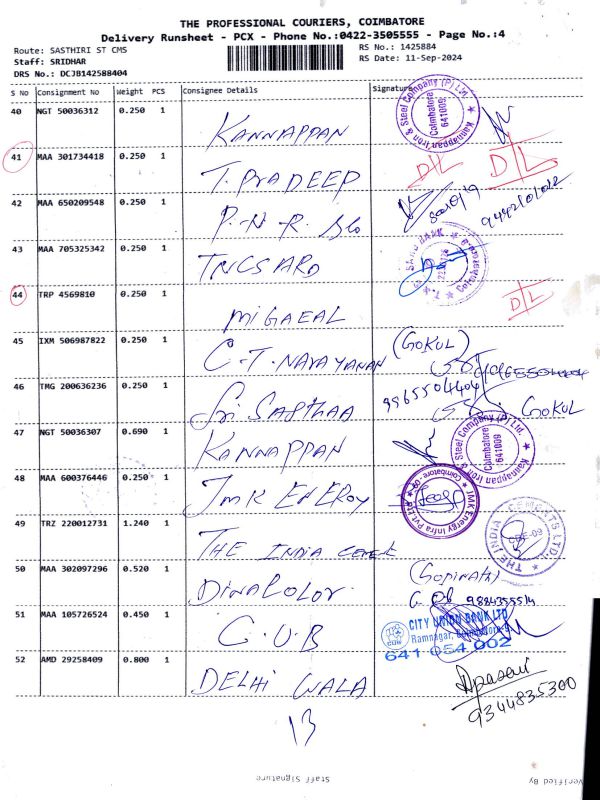 THE PROFESSIONAL COURIERS, COIMBATORE
Delivery Runsheet - PCX - Phone No.:0422-3505555 - Page No.:4
Route: SASTHIRI ST CMS RS No.: 1425884
Staff: SRIDHAR RS Date: 11-Sep-2024
DRS No.: DCJB142588404
S No Consignment No Weight PCS Consignee Details Signature
40 NGT 50036312 0.250 1 KANNAPPAN Kannappan Iron & Steel Company (P) Ltd. Coimbatore 641009
41 MAA 301734418 0.250 1 T. PRADEEP D/L D/L
42 MAA 650209548 0.250 1 P.N.R. 9442101022
43 MAA 705325342 0.250 1 TNCSARD BANK
44 TRP 4569810 0.250 1 MIGAEAL D/L
45 IXM 506987822 0.250 1 C.T. NARAYANAN (GOKUL)
46 TMG 200636236 0.250 1 Sri SASTHAA 9965504404 GOKUL
47 NGT 50036307 0.690 1 KANNAPPAN Kannappan Iron & Steel Company (P) Ltd. Coimbatore 641009
48 MAA 600376446 0.250 1 JMK ENERGY JMK Energy Infra Pvt. Ltd. Coimbatore - 09
49 TRZ 220012731 1.240 1 THE INDIA THE INDIA CEMENTS LTD. CBE-09
50 MAA 302097296 0.520 1 DINACOLOR (Gopinath)
51 MAA 105726524 0.450 1 C.U.B CITY UNION BANK LTD
Ramnagar, Coimbatore-9.
641 054 002
52 AMD 29258409 0.800 1 DELHI WALA
9344835300
13
Staff Signature Verified By